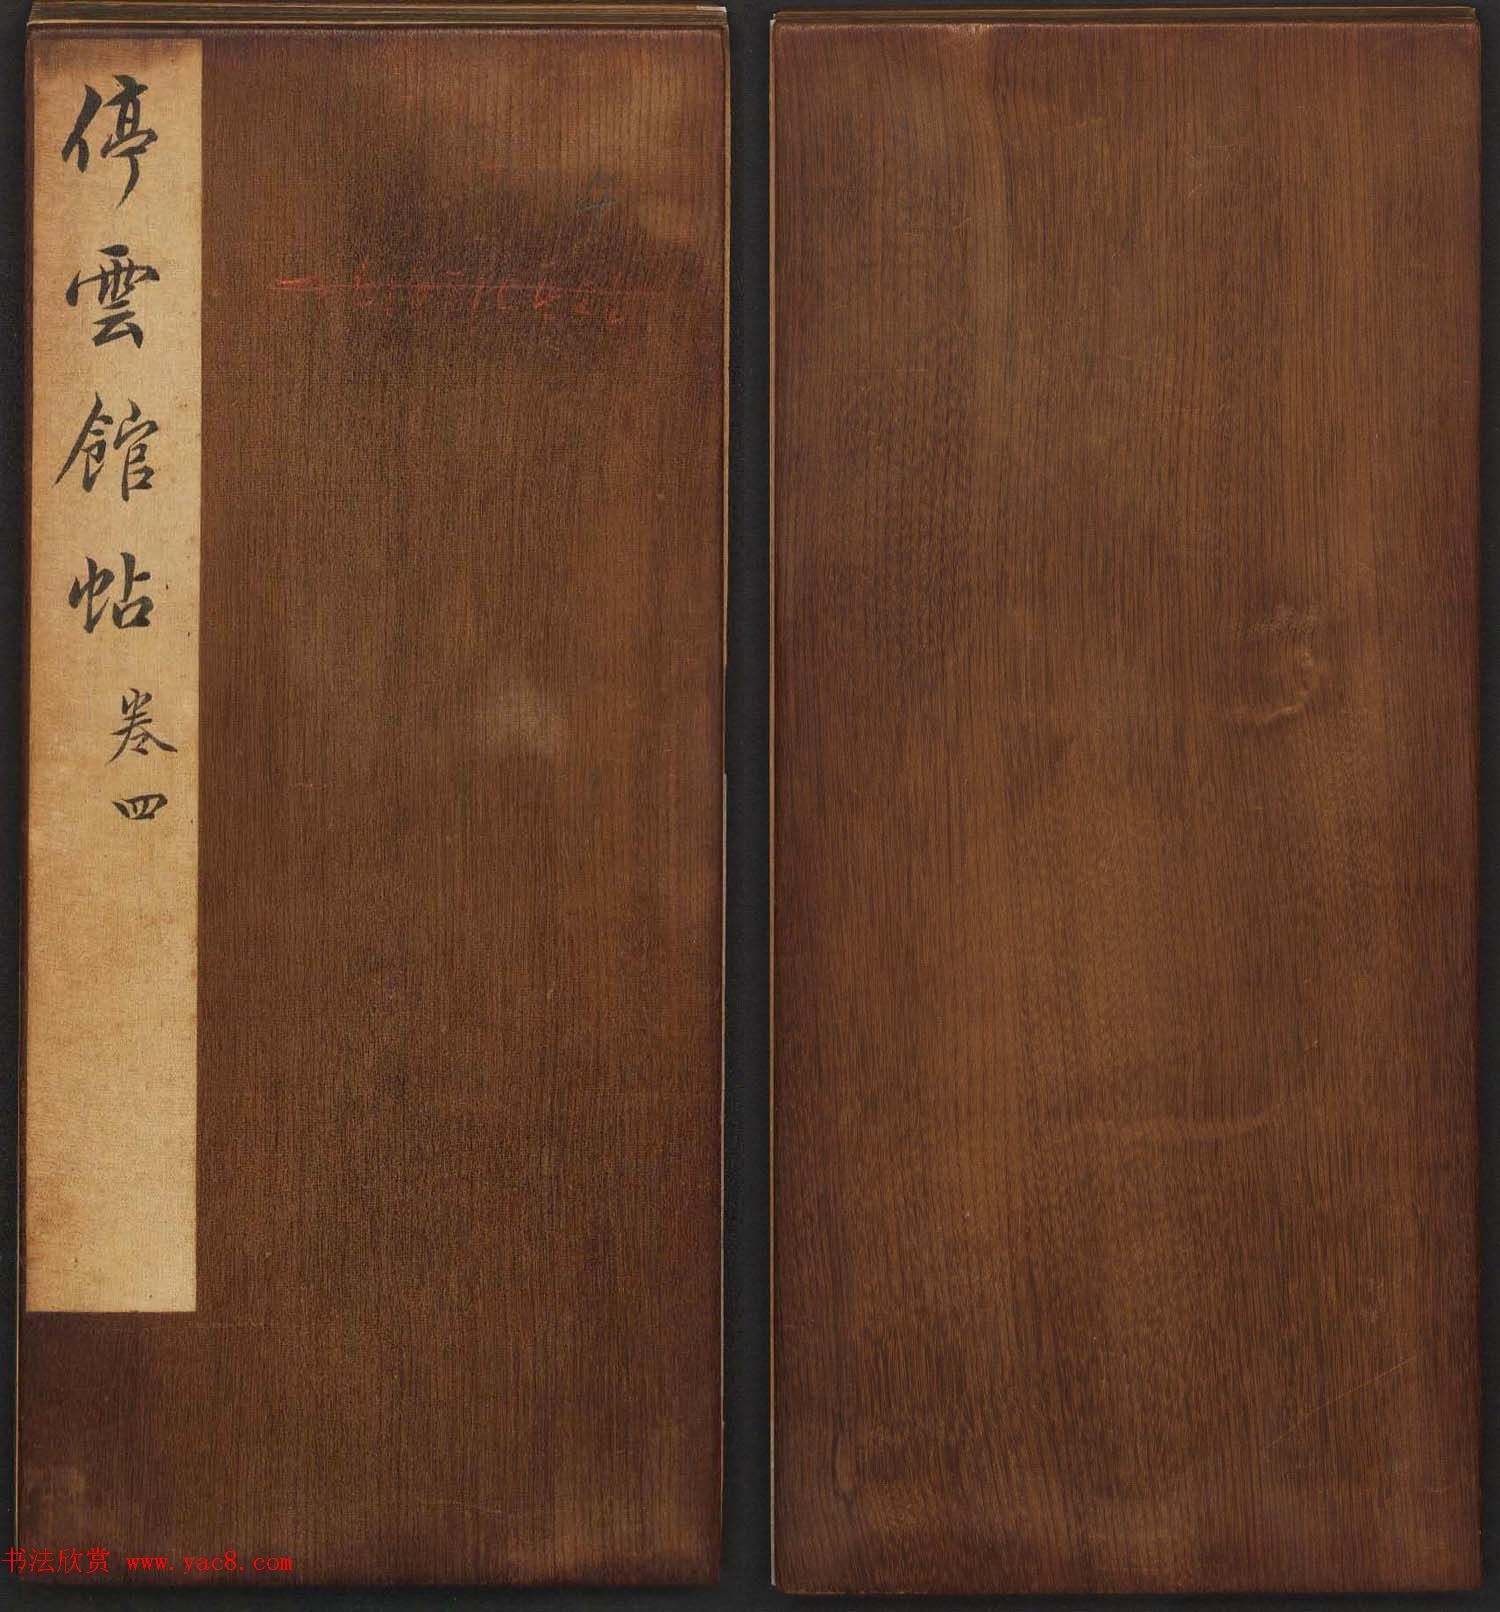 停雲館帖 卷四
书法欣赏 www.yac8.com